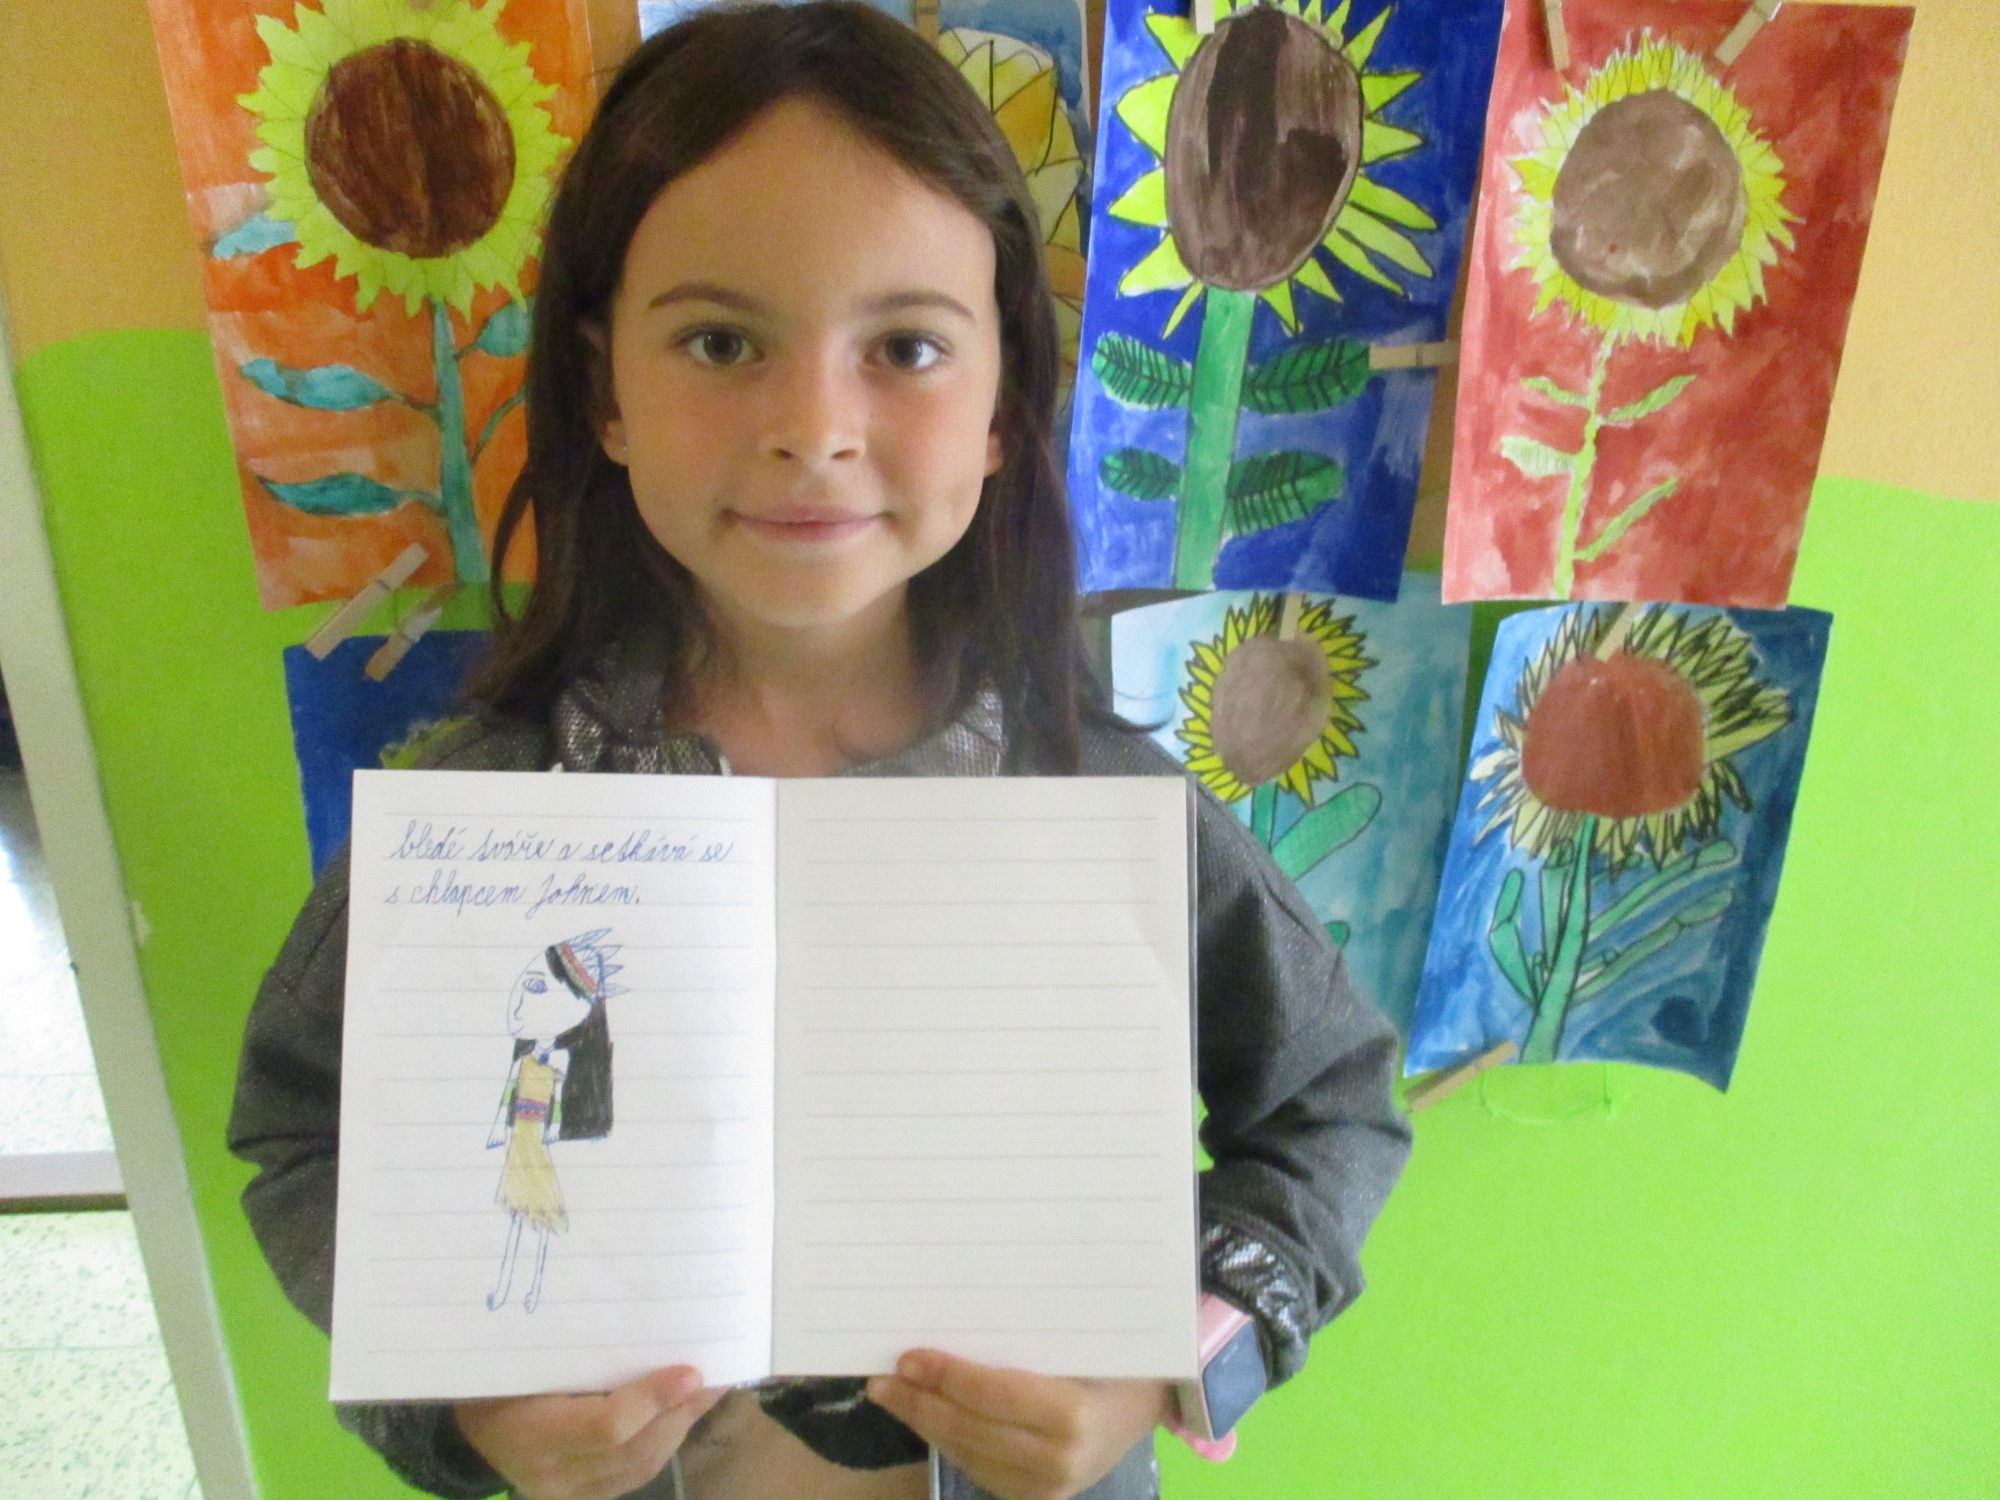 bledé tváře a setkává se
s chlapcem Johnem.